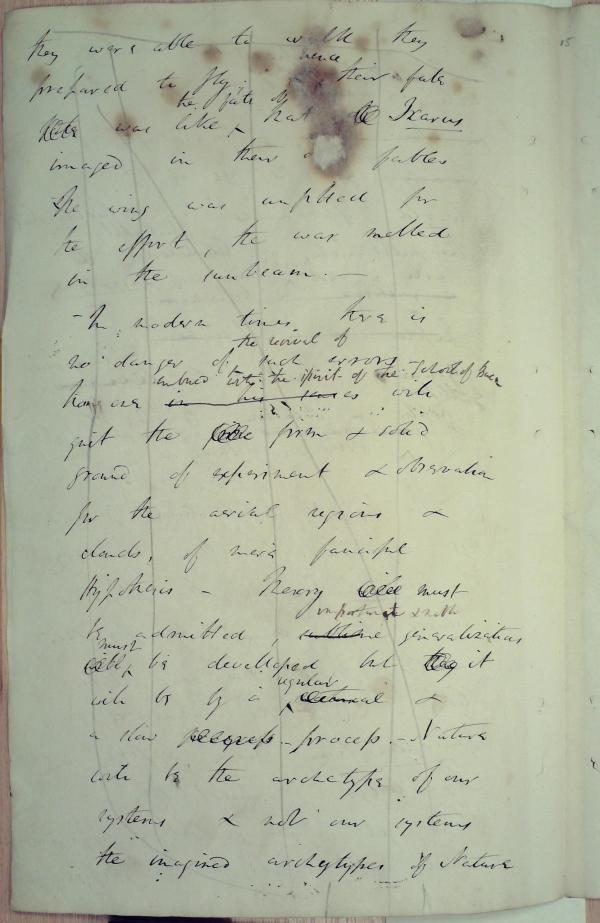 they were able to walk they
hence
prepared to fly; their fate
the fate of
was like that Ikarus
imaged in their fables
The wing was unfitted for
the effort, the wax melted
in the sunbeam. —
– In modern times there is
the revival of
no danger of such errors
imbued with the spirit of the School of Bacon
how one in his senses will
quit the firm & solid
ground of experiment & observation
for the aerial regions &
clouds, of mere fanciful
Hypothesis – Theory must
important &
be admitted, sublime generalization
must
be developed but it
regular
will be by a &
a slow process. – Nature
will be the archetype of our
systems & not our systems
the imagined archetypes of Nature